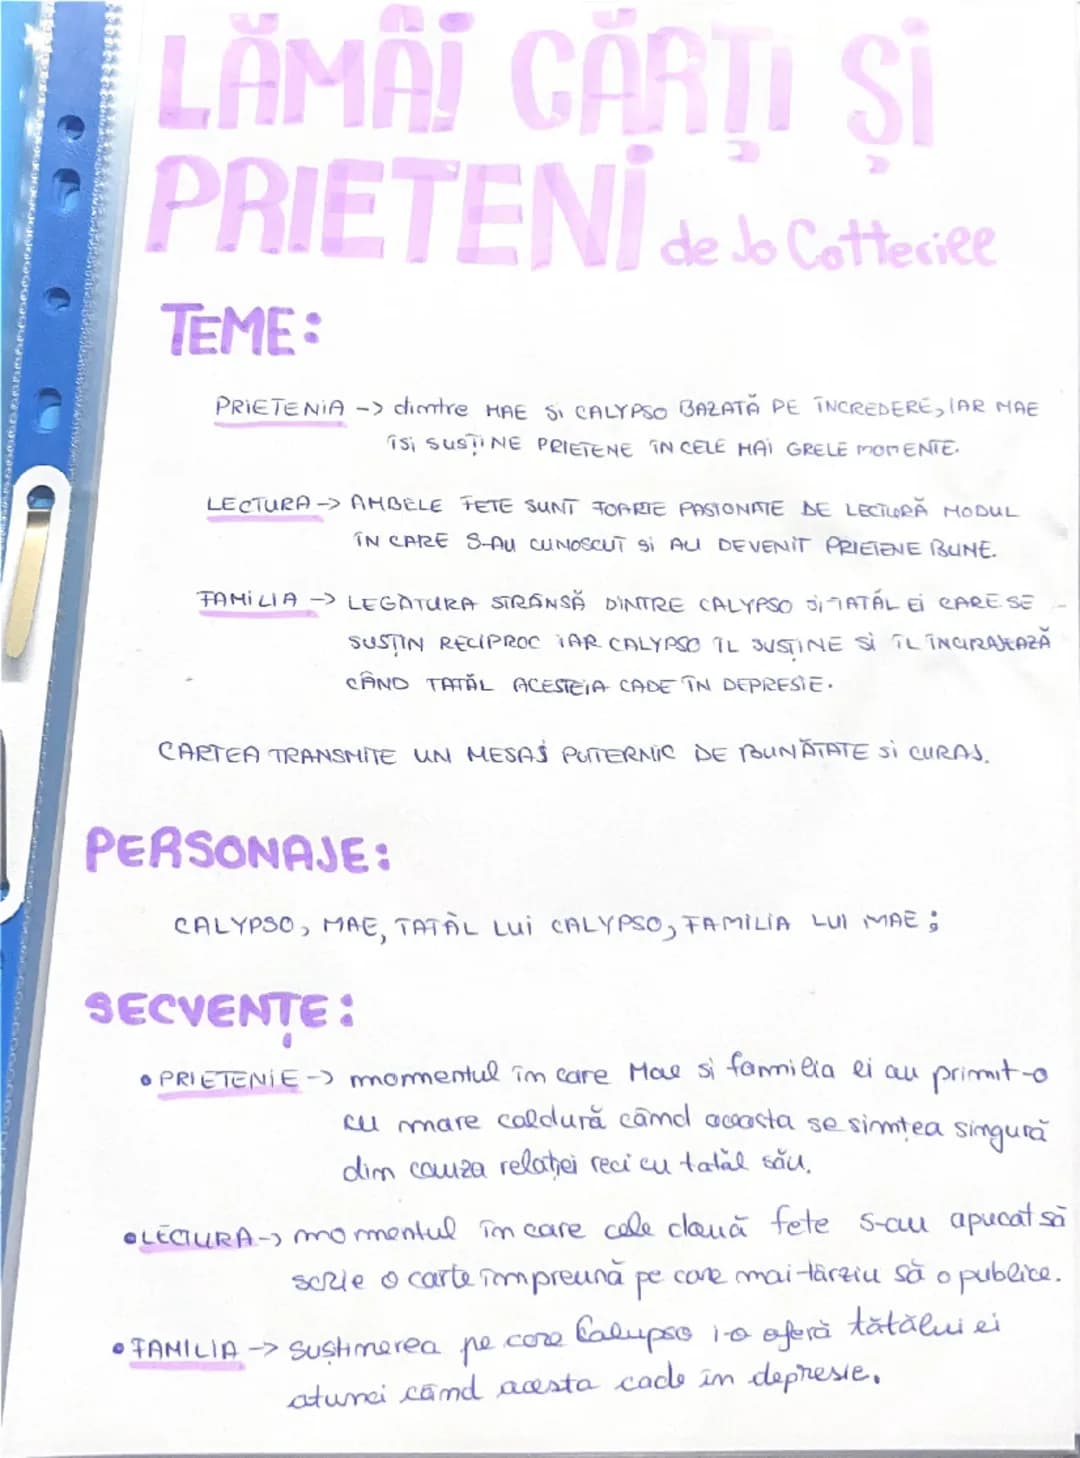 LĂMÂI CĂRȚI ȘI
PRIETENI de Jo Cotterill
TEME:
PRIETENIA -> dintre MAE SI CALYPSO BAZATĂ PE ÎNCREDERE, IAR MAE
ÎSI SUSȚINE PRIETENE ÎN CELE MAI GRELE MOMENTE.
LECTURA -> AMBELE FETE SUNT FOARTE PASIONATE DE LECTURĂ MODUL
ÎN CARE S-AU CUNOSCUT SI AU DEVENIT PRIETENE BUNE.
FAMILIA -> LEGATURA STRÂNSĂ DINTRE CALYPSO SI TATĂL EI CARE SE
SUSTIN RECIPROC IAR CALYPSO ÎL SUSTINE SI ÎL ÎNCURAJEAZĂ
CÂND TATĂL ACESTEIA CADE ÎN DEPRESIE.
CARTEA TRANSMITE UN MESAJ PUTERNIC DE BUNĂTATE SI CURAJ.
PERSONAJE:
CALYPSO, MAE, TATĂL LUI CALYPSO, FAMILIA LUI MAE;
SECVENȚE:
• PRIETENIE -> momentul în care Mae si familia ei au primit-o
cu mare caldură când aceasta se simțea singură
din cauza relației reci cu tatăl său.
• LECTURA -> momentul în care cele două fete s-au apucat să
scrie o carte împreună pe care mai-târziu să o publice.
• FAMILIA -> Susținerea pe care Calupso i-o oferă tătălui ei
atunci când acesta cade în depresie.